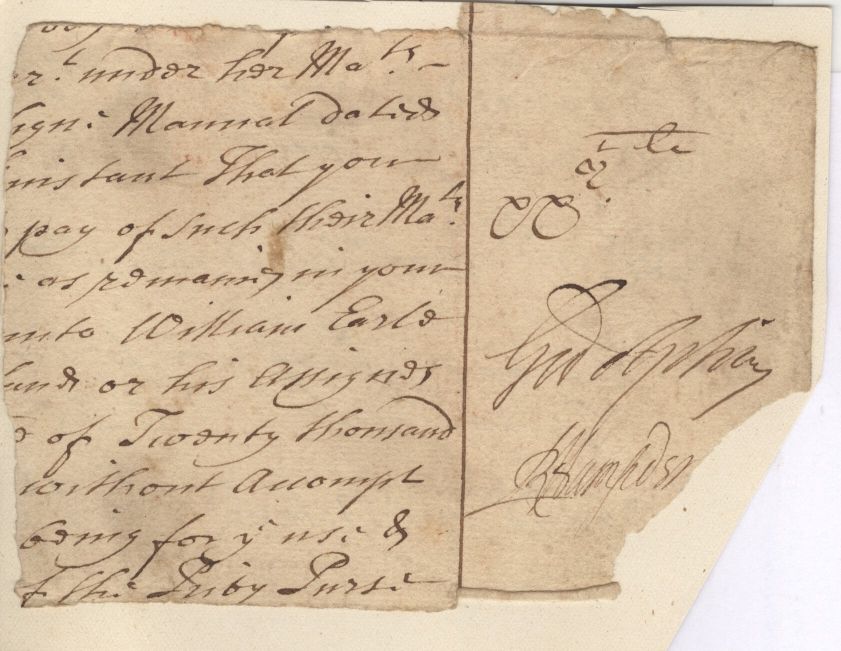 r.t under her Ma.ts
signe Manual dated
instant That you
pay of such their Ma.ts
as remaines in your
unto William Earle
land or his Assignes
of Twenty thousand
without Accompt
being for ye use &
of the Privy Purse
xx li
Godolphin
RHampden